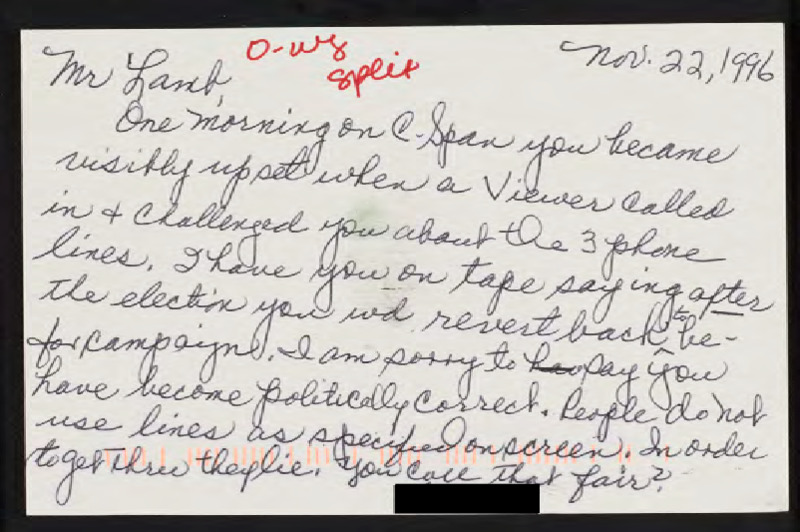 Mr Lamb,
O-ws
split
Nov. 22, 1996
One morning on C-Span you became
visibly upset when a Viewer called
in & challenged you about the 3 phone
lines. I have you on tape saying after
the election you wd revert back to be-
for campaign. I am sorry to say you
have become politically correct. People do not
use lines as specified on screen. In order
to get thru they lie. You call that fair?